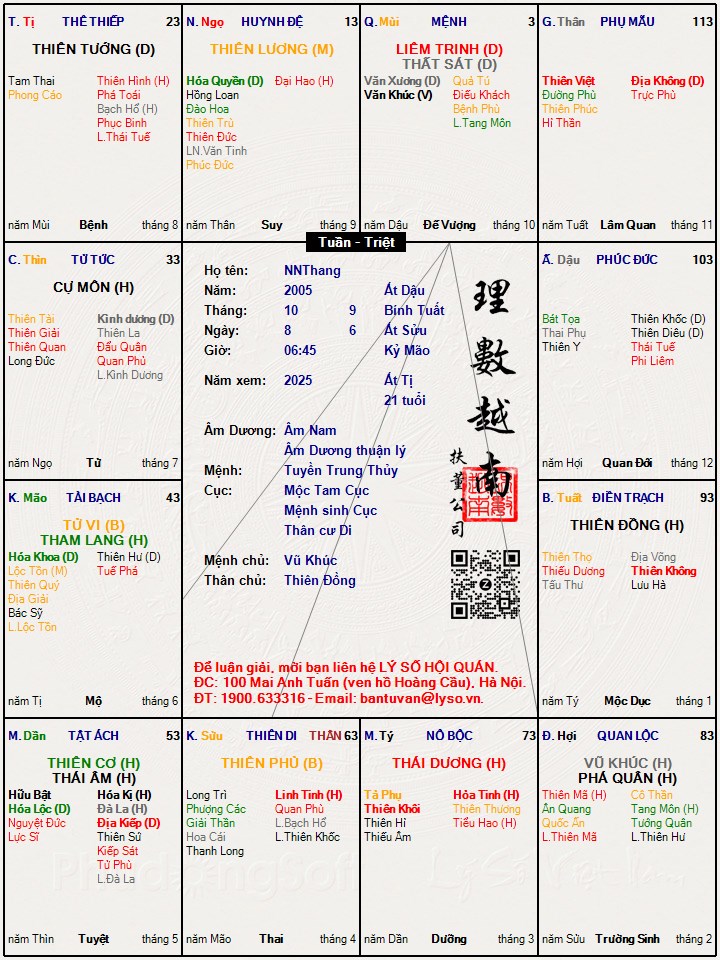 T. Tị THÊ THIẾP 23
THIÊN TƯỚNG (D)
Tam Thai
Phong Cáo
Thiên Hình (H)
Phá Toái
Bạch Hổ (H)
Phục Binh
L.Thái Tuế
năm Mùi Bệnh tháng 8
N. Ngọ HUYNH ĐỆ 13
THIÊN LƯƠNG (M)
Hóa Quyền (D)
Hồng Loan
Đào Hoa
Thiên Trù
Thiên Đức
LN.Văn Tinh
Phúc Đức
Đại Hao (H)
năm Thân Suy tháng 9
Q. Mùi MỆNH 3
LIÊM TRINH (D)
THẤT SÁT (D)
Văn Xương (D)
Văn Khúc (V)
Quả Tú
Điếu Khách
Bệnh Phù
L.Tang Môn
năm Dậu Đế Vượng tháng 10
G. Thân PHỤ MẪU 113
Thiên Việt
Đường Phù
Thiên Phúc
Hỉ Thần
Địa Không (D)
Trực Phù
năm Tuất Lâm Quan tháng 11
Tuần - Triệt
C. Thìn TỬ TỨC 33
CỰ MÔN (H)
Thiên Tài
Thiên Giải
Thiên Quan
Long Đức
Kình dương (D)
Thiên La
Đẩu Quân
Quan Phủ
L.Kình Dương
năm Ngọ Tử tháng 7
Họ tên: NNThang
Năm: 2005 Ất Dậu
Tháng: 10 9 Bính Tuất
Ngày: 8 6 Ất Sửu
Giờ: 06:45 Kỷ Mão
Năm xem: 2025 Ất Tị
21 tuổi
Âm Dương: Âm Nam
Âm Dương thuận lý
Mệnh: Tuyền Trung Thủy
Cục: Mộc Tam Cục
Mệnh sinh Cục
Thân cư Di
Mệnh chủ: Vũ Khúc
Thân chủ: Thiên Đồng
理
數
越
南
扶
董
公
司
Để luận giải, mời bạn liên hệ LÝ SỐ HỘI QUÁN.
ĐC: 100 Mai Anh Tuấn (ven hồ Hoàng Cầu), Hà Nội.
ĐT: 1900.633316 - Email: bantuvan@lyso.vn.
Ấ. Dậu PHÚC ĐỨC 103
Bát Tọa
Thai Phụ
Thiên Y
Thiên Khốc (D)
Thiên Diêu (D)
Thái Tuế
Phi Liêm
năm Hợi Quan Đới tháng 12
K. Mão TÀI BẠCH 43
TỬ VI (B)
THAM LANG (H)
Hóa Khoa (D)
Lộc Tồn (M)
Thiên Quý
Địa Giải
Bác Sỹ
L.Lộc Tồn
Thiên Hư (D)
Tuế Phá
năm Tị Mộ tháng 6
B. Tuất ĐIỀN TRẠCH 93
THIÊN ĐỒNG (H)
Thiên Thọ
Thiếu Dương
Tấu Thư
Địa Võng
Thiên Không
Lưu Hà
năm Tý Mộc Dục tháng 1
M. Dần TẬT ÁCH 53
THIÊN CƠ (H)
THÁI ÂM (H)
Hữu Bật
Hóa Lộc (D)
Nguyệt Đức
Lực Sĩ
Hóa Kị (H)
Đà La (H)
Địa Kiếp (D)
Thiên Sứ
Kiếp Sát
Tử Phù
L.Đà La
năm Thìn Tuyệt tháng 5
K. Sửu THIÊN DI THÂN 63
THIÊN PHỦ (B)
Long Trì
Phượng Các
Giải Thần
Hoa Cái
Thanh Long
Linh Tinh (H)
Quan Phù
L.Bạch Hổ
L.Thiên Khốc
năm Mão Thai tháng 4
M. Tý NÔ BỘC 73
THÁI DƯƠNG (H)
Tả Phụ
Thiên Khôi
Thiên Hỉ
Thiếu Âm
Hỏa Tinh (H)
Thiên Thương
Tiểu Hao (H)
năm Dần Dưỡng tháng 3
Đ. Hợi QUAN LỘC 83
VŨ KHÚC (H)
PHÁ QUÂN (H)
Thiên Mã (H)
Ân Quang
Quốc Ấn
L.Thiên Mã
Cô Thần
Tang Môn (H)
Tướng Quân
L.Thiên Hư
năm Sửu Trường Sinh tháng 2